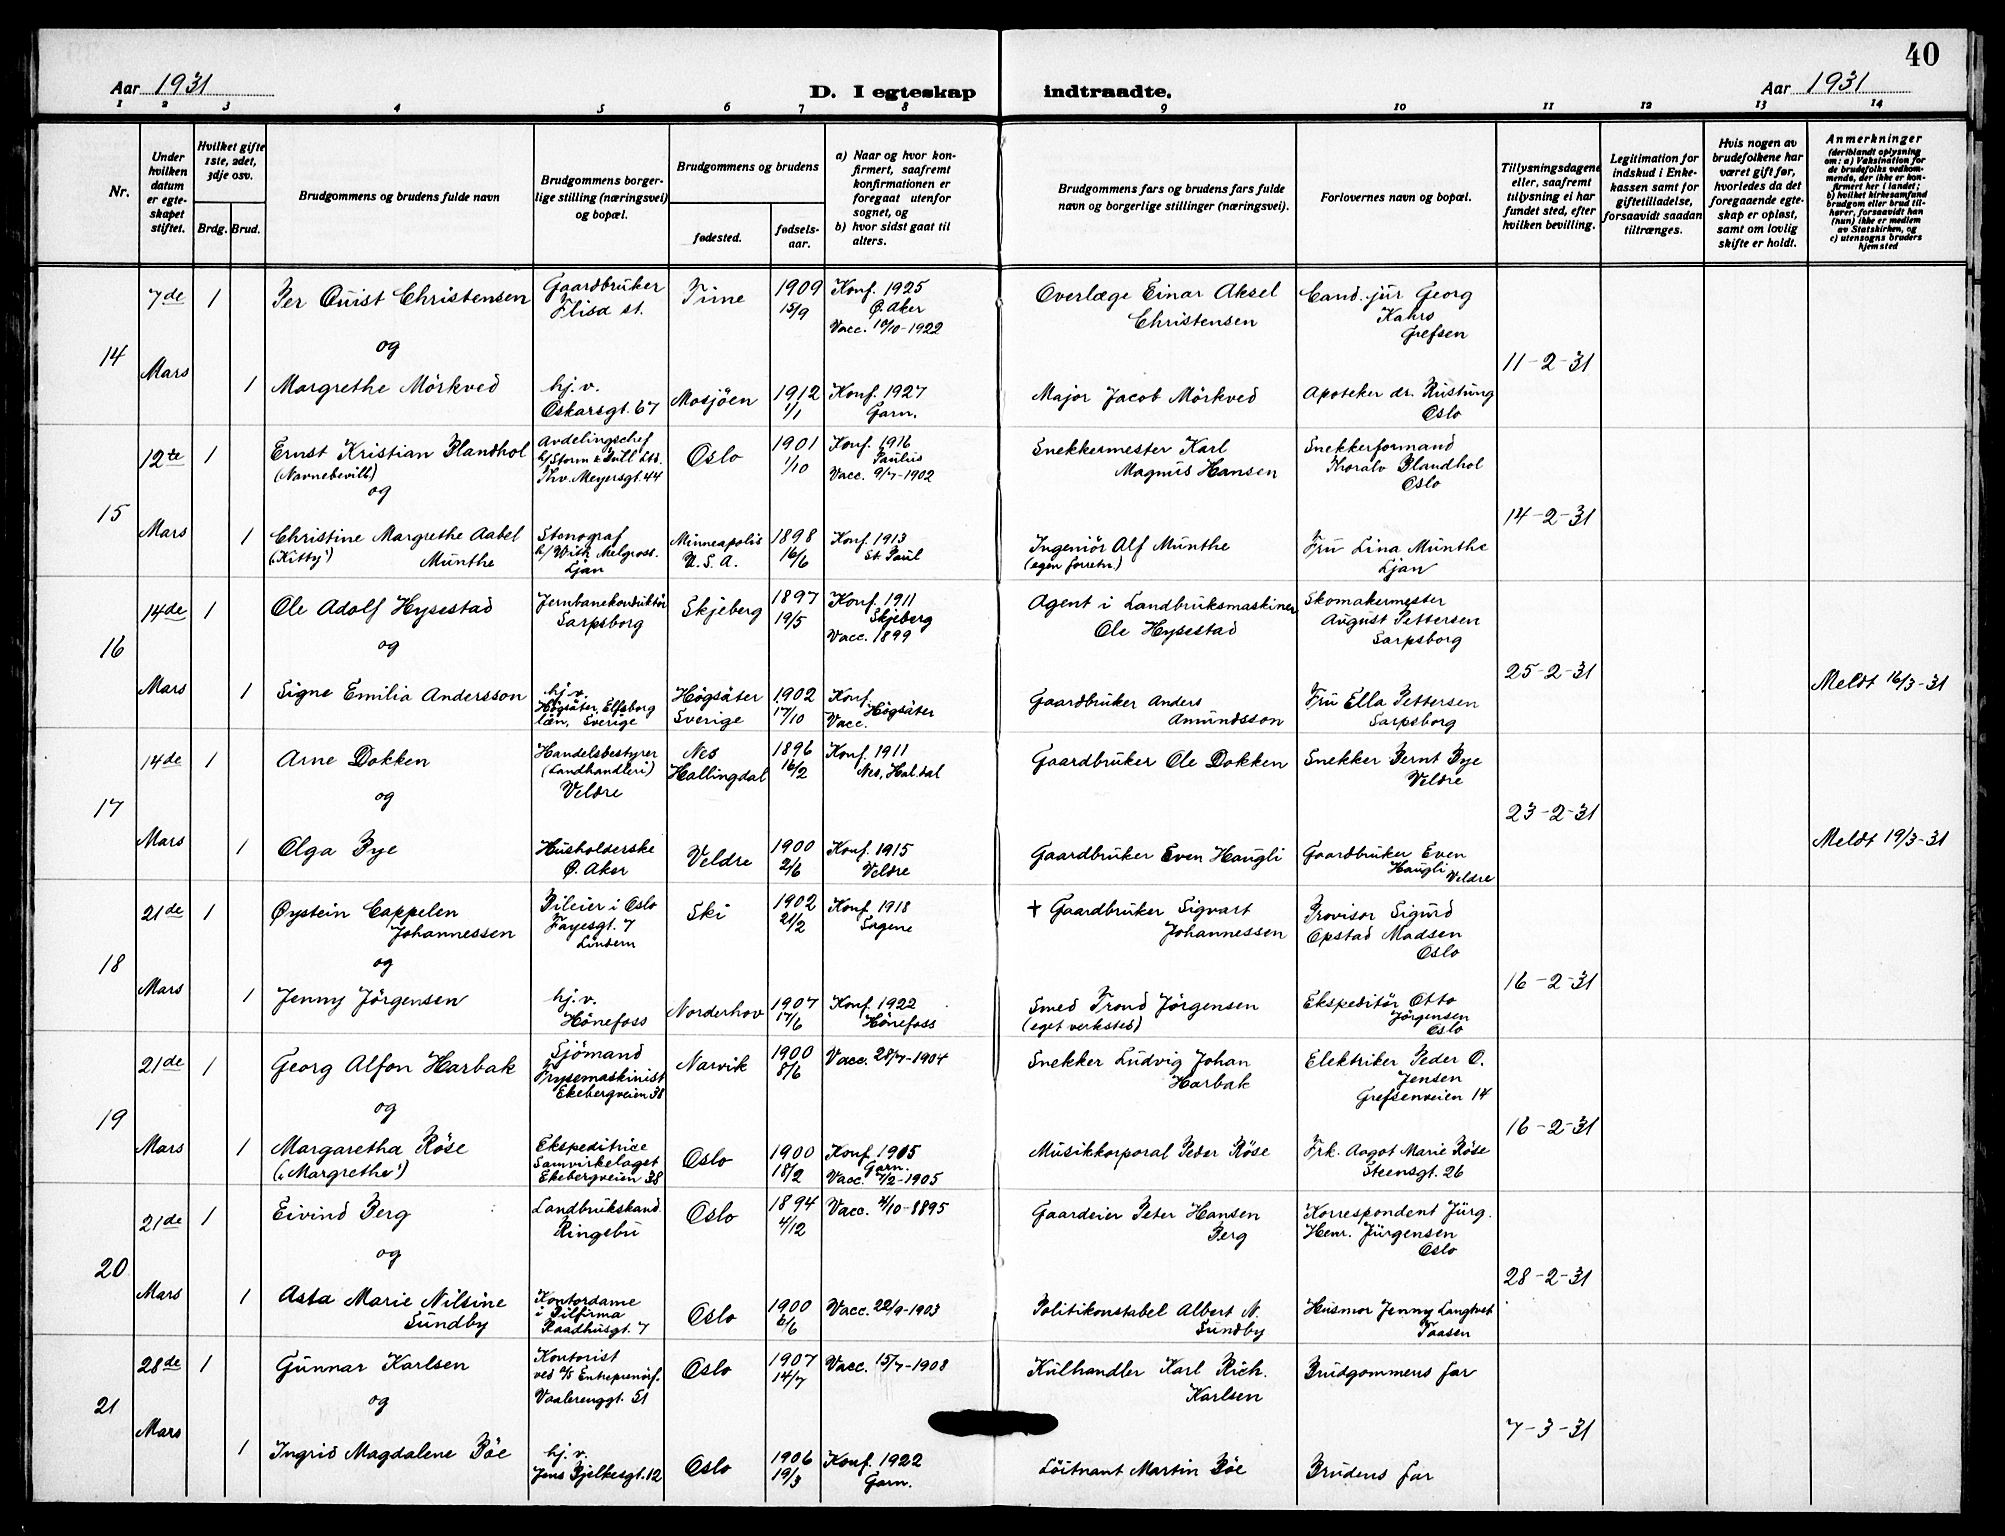 40
Aar 1931
D. I egteskap indtraadte.
Aar 1931
1 2 3 4 5 6 7 8 9 10 11 12 13 14
Nr.
Under hvilken datum er egteskapet stiftet.
Hvilket gifte 1ste, 2det, 3dje osv.
Brdg. Brud.
Brudgommens og brudens fulde navn
Brudgommens borgerlige stilling (næringsvei) og bopæl.
Brudgommens og brudens
fødested.
fødselsaar.
a) Naar og hvor konfirmert, saafremt konfirmationen er foregaat utenfor sognet, og
b) hvor sidst gaat til alters.
Brudgommens fars og brudens fars fulde navn og borgerlige stillinger (næringsvei).
Forlovernes navn og bopæl.
Tillysningsdagene eller, saafremt tillysning ei har fundet sted, efter hvilken bevilling.
Legitimation for indskud i Enkekassen samt for giftetilladelse, forsaavidt saadan tiltrænges.
Hvis nogen av brudefolkene har været gift før, hvorledes da det foregaaende egteskap er opløst, samt om lovlig skifte er holdt.
Anmerkninger
(deriblandt oplysning om: a) Vaksination for de brudefolks vedkommende, der ikke er konfirmert her i landet; b) hvilket kirkesamfund brudgom eller brud tilhører, forsaavidt han (hun) ikke er medlem av Statskirken, og c) utensogns bruders hjemsted
14
7de Mars
1
Per Quist Christensen
Gaardbruker
Flisa st.
Time
1909
15/9
Konf. 1925
Ø. Aker
Vacc. 10/10-1922
Overlæge Einar Aksel
Christensen
Cand. jur Georg
Kahrs
Grefsen
og
11-2-31
1
Margrethe Mörkved
hj. v.
Oskarsgt. 67
Mosjöen
1912
1/1
Konf. 1927
Garn.
Major Jacob Mörkved
Apoteker dr. Rustung
Oslo
15
12te Mars
1
Ernst Kristian Blandhol
(Navnebevilg)
Avdelingschef
h/Storm & Bull Ltd.
Thv. Meyersgt. 44
Oslo
1901
1/10
Konf. 1916
Paulus
Vacc. 9/7-1902
Snekkermester Karl
Magnus Hansen
Snekkerformand
Thoralv Blandhol
Oslo
og
14-2-31
1
Christine Margrethe Aabel
("Kitty") Munthe
Stenograf
h/Wish Melgross.
Ljan
Minneapolis
U.S.A.
1898
16/6
Konf. 1913
St Paul
Ingeniör Alf Munthe
(egen forretn.)
Fru Lina Munthe
Ljan
16
14de Mars
1
Ole Adolf Hysestad
Jernbanekonduktör
Sarpsborg
Skjeberg
1897
19/5
Konf. 1911
Skjeberg
Vacc. 1899
Agent i Landbruksmaskiner
Ole Hysestad
Skomakermester
August Pettersen
Sarpsborg
og
25-2-31
1
Signe Emilia Andersson
hj. v.
Högsäter, Elfsborg
län, Sverige
Högsäter
Sverige
1902
17/10
Konf.
Högsäter
Vacc.
Gaardbruker Anders
Amundsson
Fru Ella Pettersen
Sarpsborg
Meldt 16/3-31
17
14de Mars
1
Arne Dokken
Handelsbestyrer
(Landhandleri)
Veldre
Nes
Hallingdal
1896
16/2
Konf. 1911
Nes, Hal.dal
Gaardbruker Ole Dokken
Snekker Bernt Bye
Veldre
og
23-2-31
1
Olga Bye
Husholderske
Ø. Aker
Veldre
1900
2/6
Konf. 1915
Veldre
Gaardbruker Even Haugli
Gaardbruker Even
Haugli
Veldre
Meldt 19/3-31
18
21de Mars
1
Øystein Cappelen
Johannessen
Bileier i Oslo
Fayesgt. 7
Lindern
Ski
1902
21/2
Konf. 1918
Sagene
† Gaardbruker Sigvart
Johannessen
Provisor Sigurd
Opstad Madsen
Oslo
og
16-2-31
1
Jenny Jörgensen
hj. v.
Hönefoss
Norderhov
1907
17/6
Konf. 1922
Hönefoss
Smed Trond Jörgensen
(eget verksted)
Ekspeditör Otto
Jörgensen
Oslo
19
21de Mars
1
Georg Alfon Harbak
Sjömand
Frysemaskinist
Ekebergveien 38
Narvik
1900
8/6
Vacc. 28/7-1904
Snekker Ludvig Johan
Harbak
Elektriker Peder O.
Jensen
Grefsenveien 14
og
16-2-31
1
Margaretha Röse
("Margrethe")
Ekspeditrice
Samvirkelaget
Ekebergveien 38
Oslo
1900
18/2
Konf. 1915
Garn.
Vacc. /2-1905
Musikkorporal Peder Röse
Frk. Aagot Marie Röse
Steensgt. 26
20
21de Mars
1
Eivind Berg
Landbrukskand.
Ringebu
Oslo
1894
4/12
Vacc. 4/10-1895
Gaardeier Peter Hansen
Berg
Korrespondent Jürg.
Henr. Jürgensen
Oslo
og
28-2-31
1
Asta Marie Nilsine
Sundby
Kontordame
i Bilfirma
Raadhusgt. 7
Oslo
1900
6/6
Vacc. 22/9-1903
Politikonstabel Albert N.
Sundby
Husmor Jenny Langtvet
Taasen
21
28de Mars
1
Gunnar Karlsen
Kontorist
ved A/S Entreprenörf.
Vaalerenggt. 51
Oslo
1907
14/7
Vacc. 15/7-1908
Kulhandler Karl Rich.
Karlsen
Brudgommens far
og
7-3-31
1
Ingrid Magdalene Böe
hj. v.
Jens Bjelkesgt. 12
Oslo
1906
19/3
Konf. 1922
Garn.
Löitnant Martin Böe
Brudens far